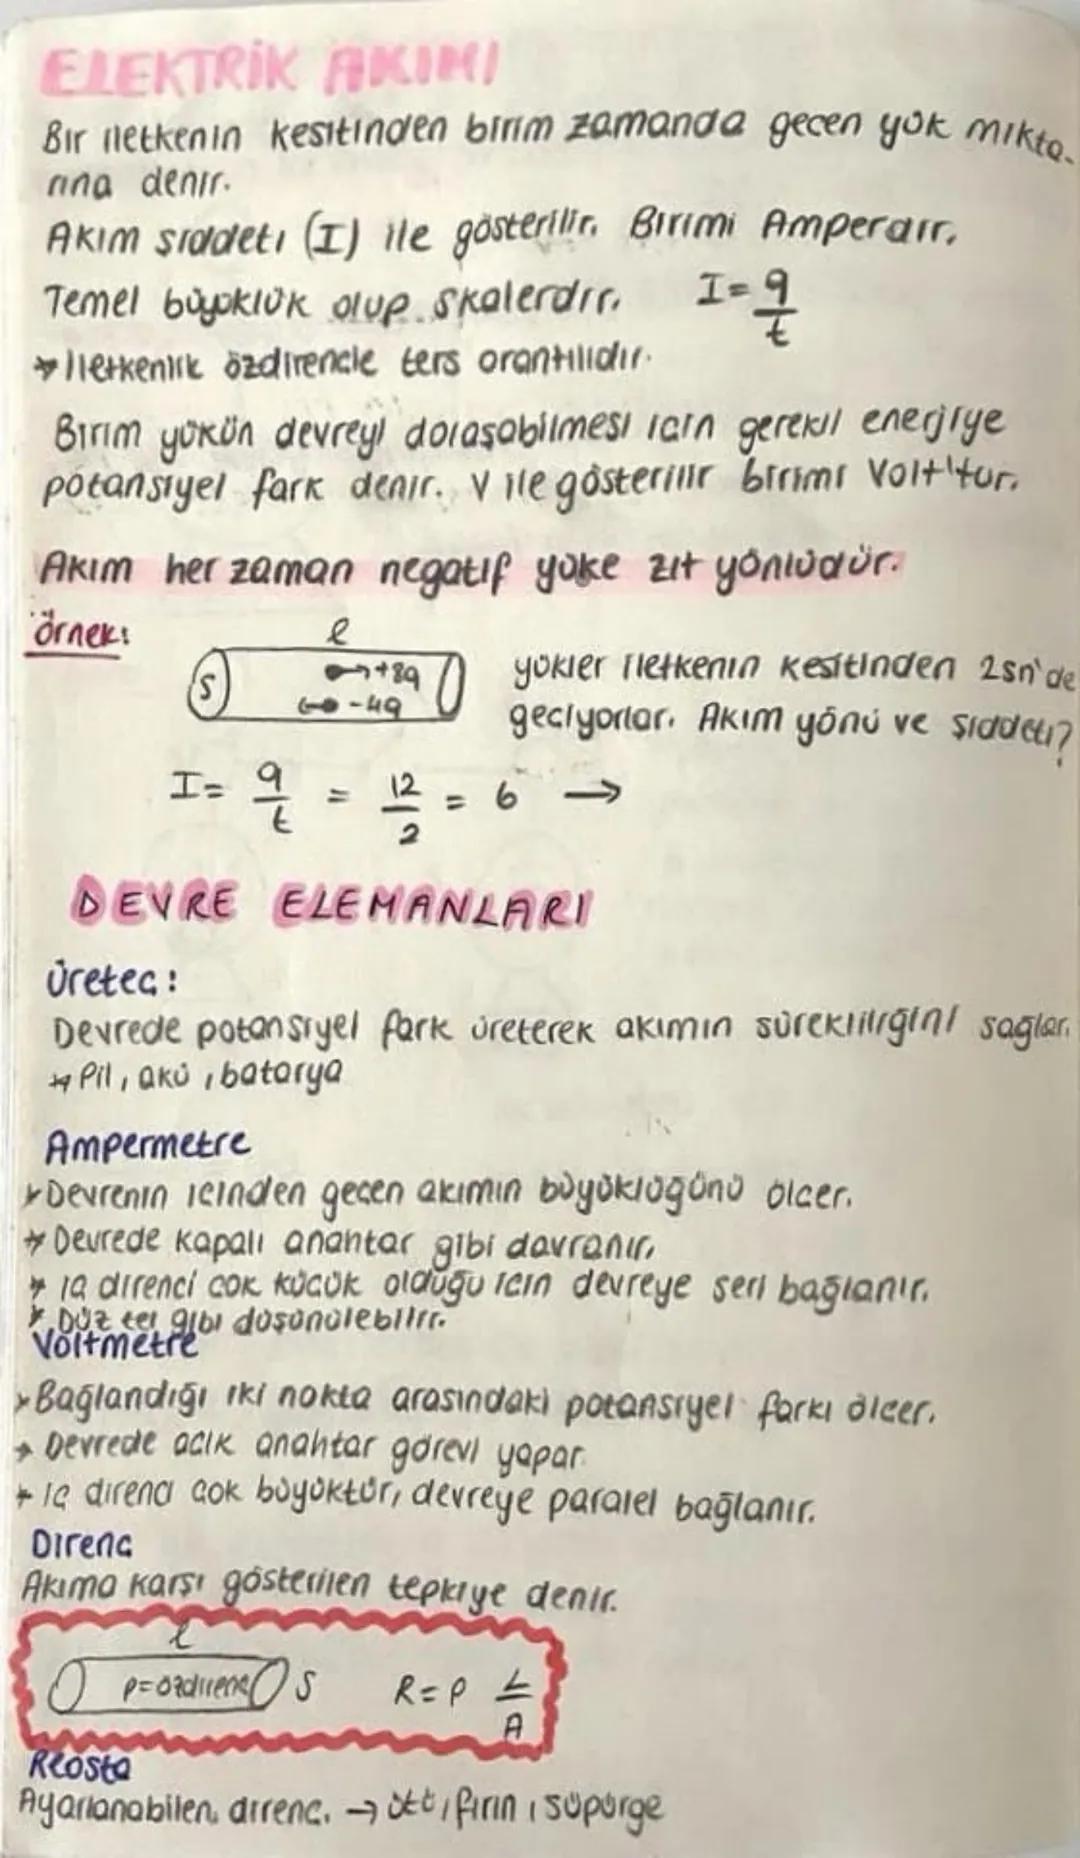 ELEKTRİK AKIMI
Bir iletkenin kesitinden birim zamanda geçen yük mikta-
rına denir.
Akım şiddeti (I) ile gösterilir. Birimi Amperdir.
Temel büyüklük olup skalerdir. I = q/t
→ İletkenlik özdirençle ters orantılıdır.
Birim yükün devreyi dolaşabilmesi için gerekli enerjiye
potansiyel fark denir. V ile gösterilir birimi Volt'tur.
Akım her zaman negatif yüke zıt yönlüdür.
örnek:
l
S +8q
-4q
yükler iletkenin kesitinden 2sn'de
geçiyorlar. Akım yönü ve şiddeti?
I = q/t = 12/2 = 6 →
DEVRE ELEMANLARI
Üreteç:
Devrede potansiyel fark üreterek akımın sürekliliğini sağlar.
→ Pil, akü, batarya
Ampermetre
→ Devrenin içinden geçen akımın büyüklüğünü ölçer.
→ Devrede kapalı anahtar gibi davranır.
→ iç direnci çok küçük olduğu için devreye seri bağlanır.
→ Düz tel gibi düşünülebilir.
Voltmetre
→ Bağlandığı iki nokta arasındaki potansiyel farkı ölçer.
→ Devrede açık anahtar görevi yapar.
→ iç direnci çok büyüktür, devreye paralel bağlanır.
Direnç
Akıma karşı gösterilen tepkiye denir.
l
ρ=özdirenç S R = ρ L/A
Reosta
Ayarlanabilen direnç. → ütü, fırın, süpürge